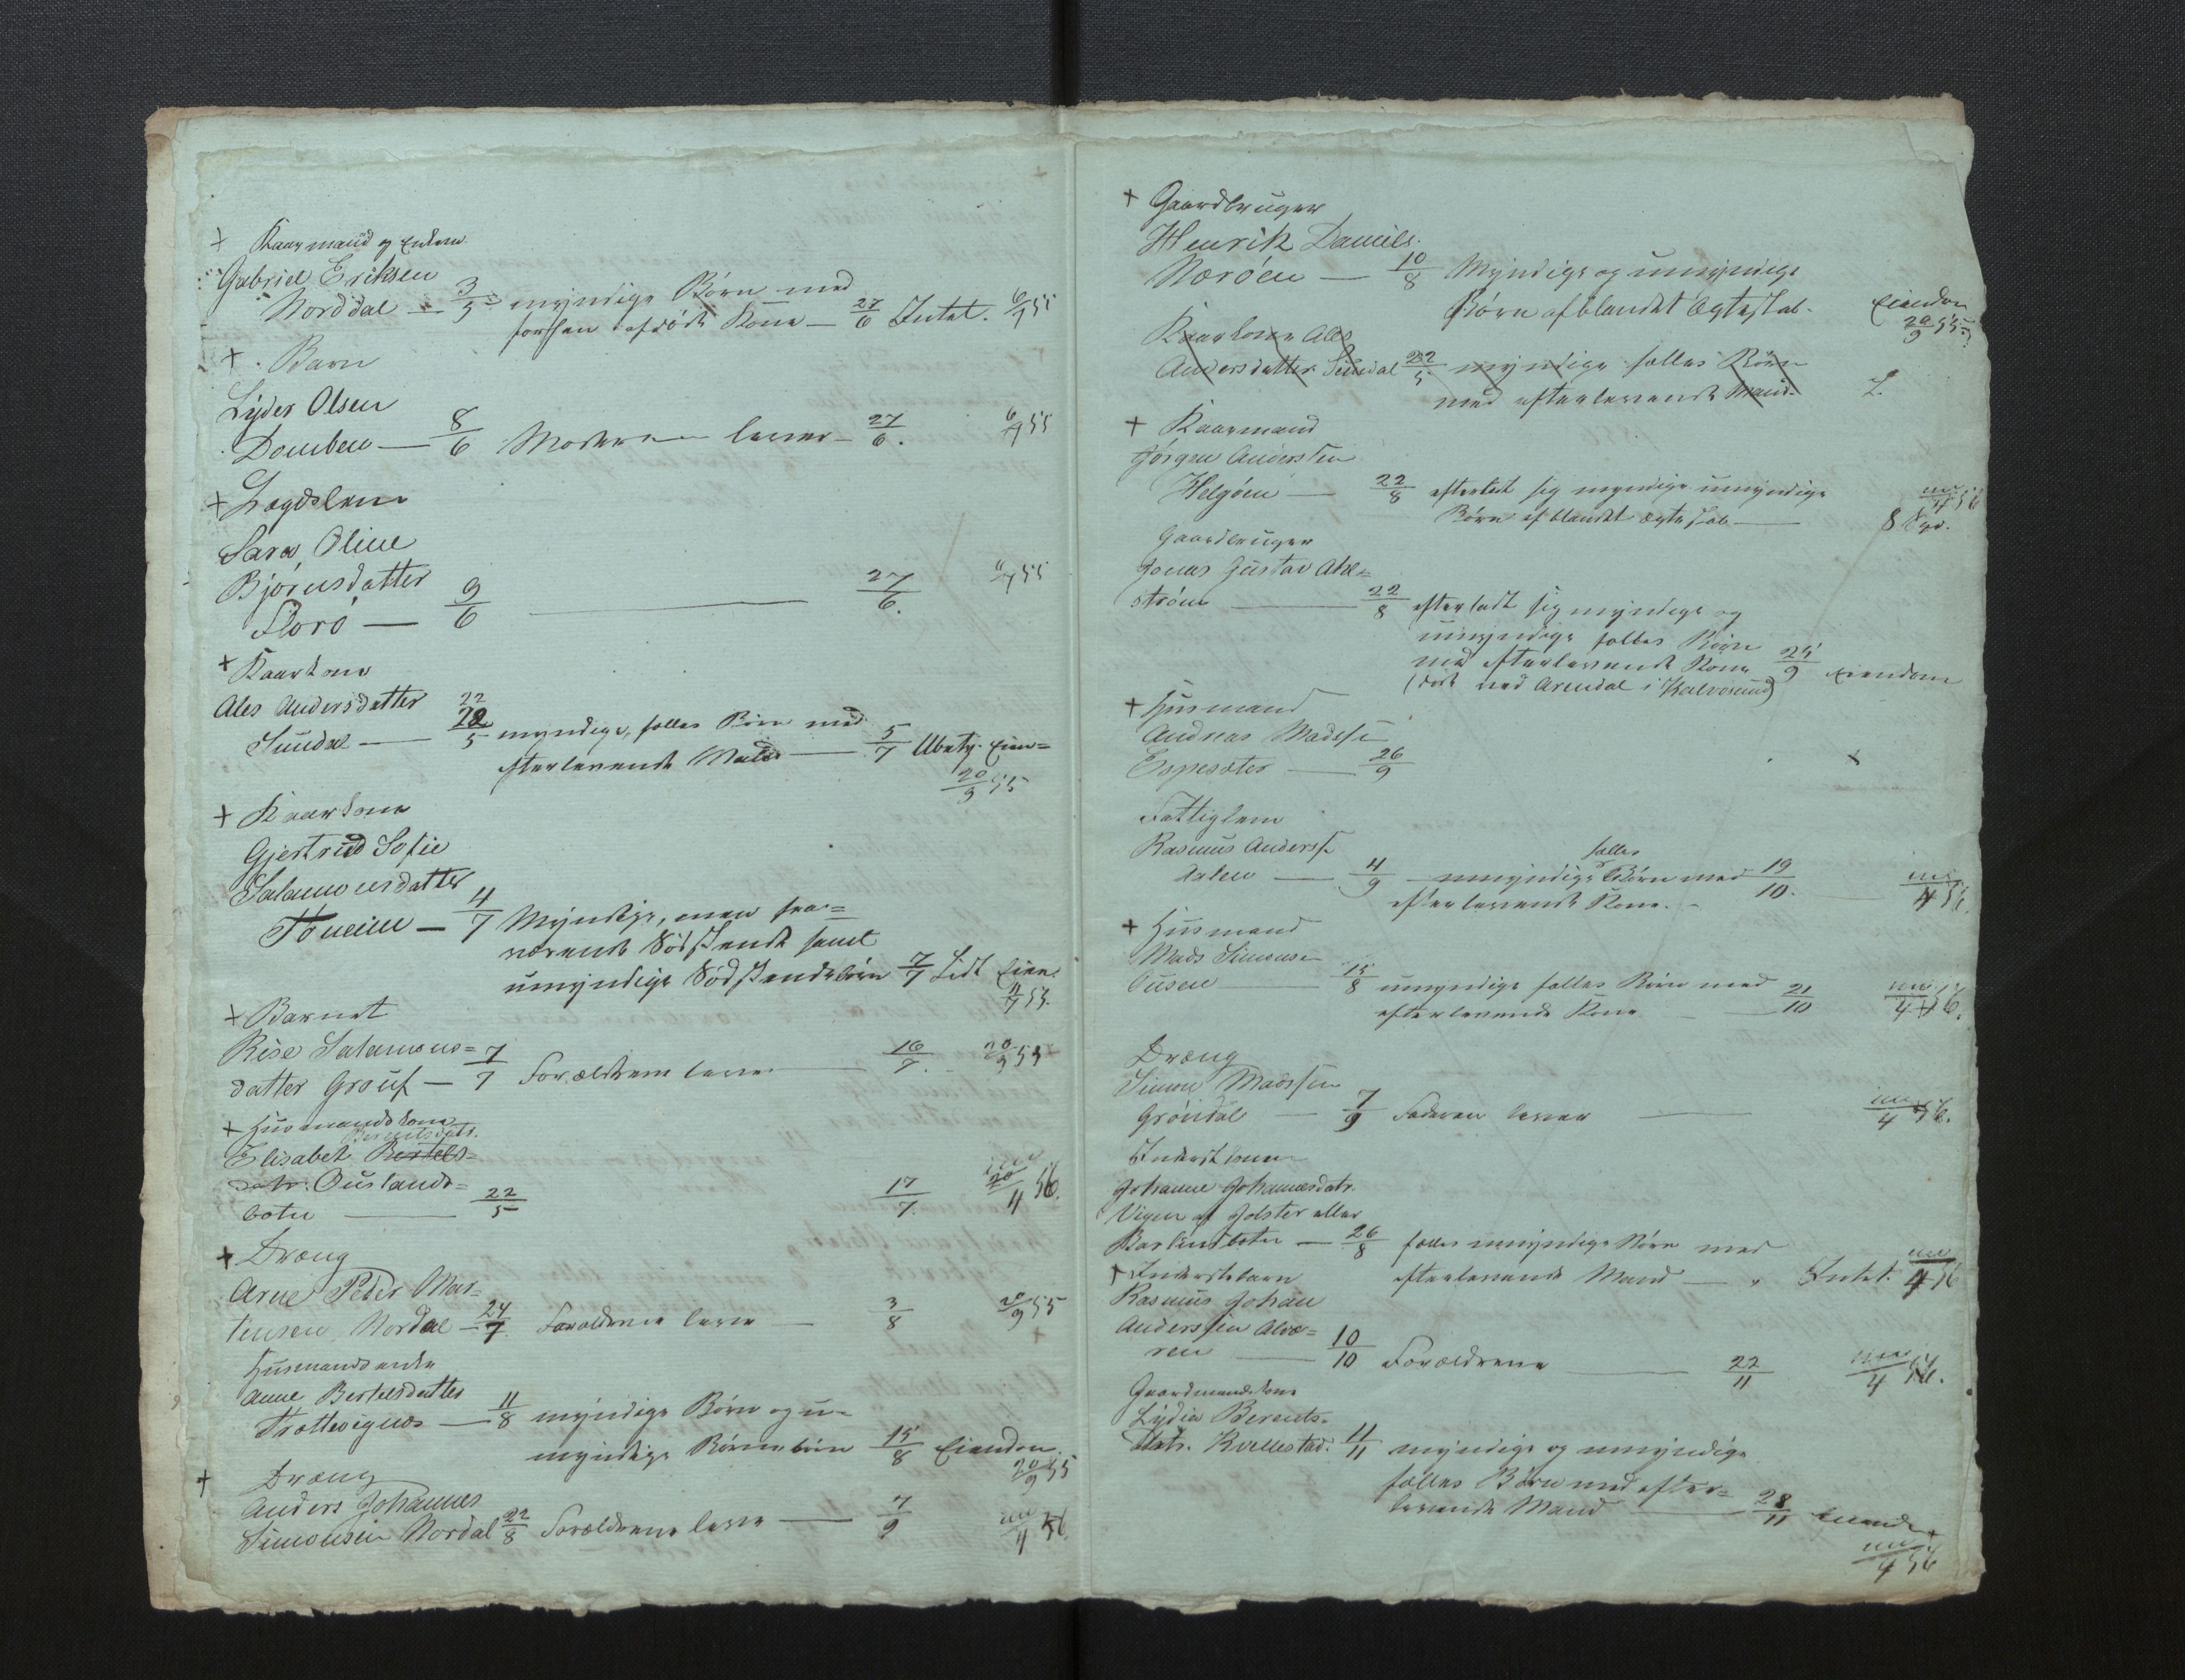 + Kaarmand og Enkem.
Gabriel Eriksen
Norddal — 3/5 myndige Børn med
forhen afdøde Kone — 27/6 Intet. 6/7 55
+ Barn
Lyder Olsen
Domben — 8/6 Moderen lever — 27/6. 6/7 55
+ Lægdslem
Sara Oline
Bjørnsdatter
Florø — 9/6 — 27/6. 6/7 55
+ Kaarkone
Ales Andersdatter
Sundal — 22/5 myndige, fælles Børn med
efterlevende Mand — 5/7 Ubety. Eien=
20/9 55
+ Kaarkone
Gjertrud Sofie
Salamonsdatter
— 4/7 Myndige, men fra=
værende Sødskende samt
umyndige Sødskendebørn 7/7 Lidt Eien.
11/7 55.
+ Barnet
Rise Salamons=
datter Grouf — 7/7 Forældrene lever — 16/7. 20/9 55
+ Husmandskone
Berentsdatr.
Elisabet Bertels=
datr. Ouslands=
botn — 22/5 17/7. 4 56.
+ Dræng
Arne Peder Mar=
tensen Nordal — 24/7 Forældrene leve — 3/8 20/9 55
Husmandsenke
Anne Bertelsdatter
Trættevignæs — 11/8 myndige Børn og u=
myndige Børnebørn 15/8 Eiendom.
20/9 55
+ Dræng
Anders Johannes
Simonsen Nordal 22/8 Forældrene leve — 7/9 4 56.
+ Gaardbruger
Henrik Daniels.
Nærøen — 10/8 Myndige og umyndige
Børn af blandet Ægteskab. Eiendom
20/9 55.
Kaarkone Ales
Andersdatter Sundal 22/5 myndige fælles Børn
med efterlevende Mand.
+ Kaarmand
Jørgen Anderssen
Helgøen — 22/8 efterladt sig myndige umyndige 4 56
Børn af blandet Ægteskab — 8 Spd.
Gaardbruger
Jonas Gustav Ahl=
strøm — 22/8 efterladt sig myndige og
umyndige fælles Børn
med efterlevende Kone 25/9 Eiendom
(død ved Arendal i Kalvesund)
+ Husmand
Andreas Madssen
Espesæter — 26/9 x
Fattiglem
Rasmus Anderss.
dalen — 4/9 — umyndige fælles Børn med 19/10. 4 56.
efterlevende Kone. —
+ Husmand
Mads Simonsen
Ousen — 15/8 umyndige fælles Børn med 21/10 4 56.
efterlevende Kone —
Dræng
Simon Madssen
Grøndal — 7/9 Faderen lever — 4 56.
Inderstkone
Johanne Johannesdatr.
Vigen af Jølster eller
Barlindbotn — 26/8 fælles umyndige Børn med
efterlevende Mand — " Intet. 4 56
+ Inderstebarn
Rasmus Johan
Anderssen Alvæ=
ren — 10/10 Forældrene — 22/11 4 56.
Gaardmandskone
Lydia Berents=
datr. Kvellestad. 11/11 myndige og umyndige
fælles Børn med efter=
levende Mand — 28/11 Eiendom
4 56